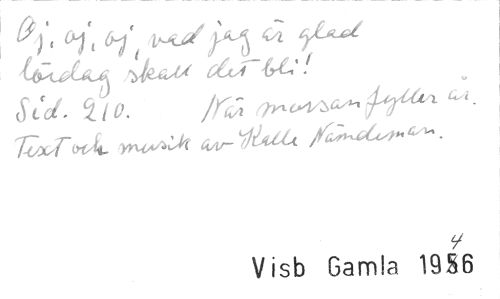 Oj, oj, oj, vad jag är glad
lördag skall det bli!
Sid. 210. När morsan fyller år.
Text och musik av Kalle Nämdeman.
Visb Gamla 1946